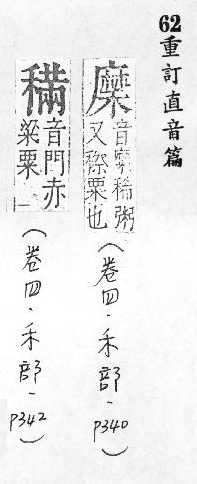 62重訂直音篇
穈
音縻稀粥
又穄粟也
(卷四、禾部、p340)
音門赤
粱粟一
(卷四、禾部、p342)